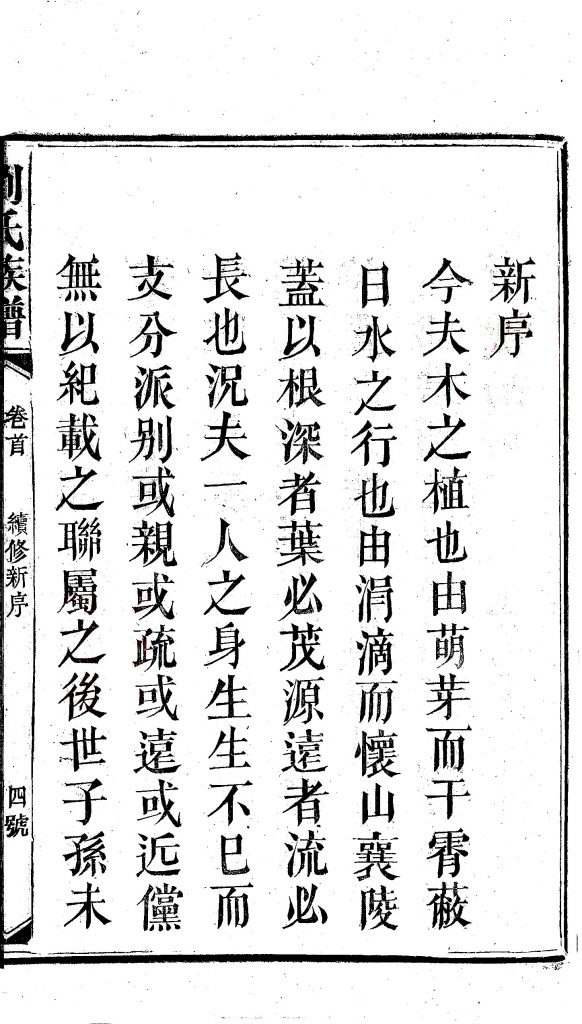 新序
今夫木之植也由萌芽而干霄蔽
日水之行也由涓滴而懷山襄陵
蓋以根深者葉必茂源遠者流必
長也況夫一人之身生生不已而
支分派别或親或疏或遠或近儻
無以紀載之聯屬之後世子孫未
劉氏族譜
卷首
續修新序
四號